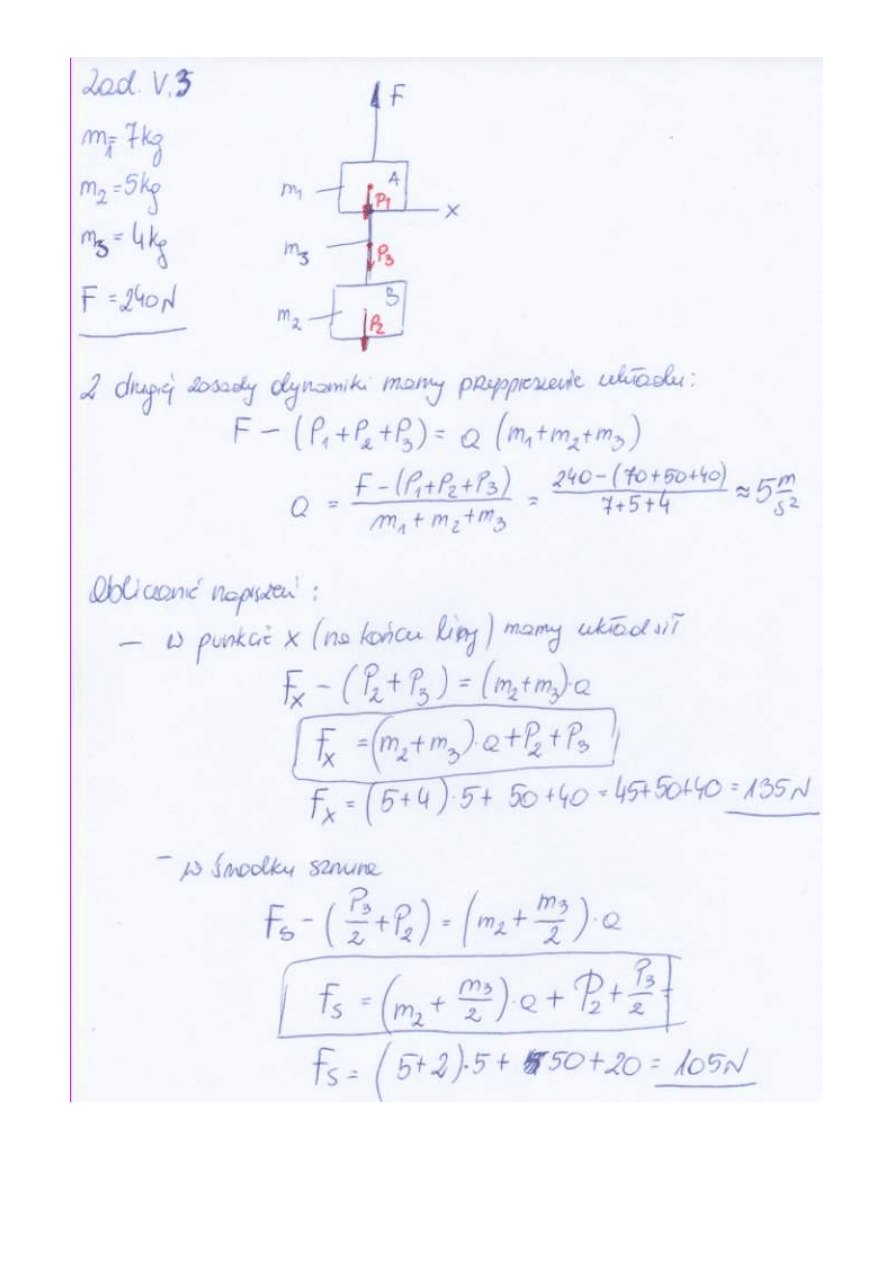 Zad. V.3
m₁=7kg
m₂=5kg
m₃=4kg
F=240N
F
m₁
A
P₁
x
m₃
P₃
B
m₂
P₂
Z drugiej zasady dynamiki mamy przyspieszenie układu:
F-(P₁+P₂+P₃)=a(m₁+m₂+m₃)
a = \frac{F-(P₁+P₂+P₃)}{m₁+m₂+m₃} = \frac{240-(70+50+40)}{7+5+4} ≈ 5 \frac{m}{s²}
Obliczanie naprężeń:
- w punkcie x (na końcu liny) mamy układ sił
Fₓ-(P₂+P₃)=(m₂+m₃)·a
Fₓ=(m₂+m₃)·a+P₂+P₃
Fₓ=(5+4)·5+50+40=45+50+40=135N
- w środku sznura
Fₛ-(\frac{P₃}{2}+P₂)=(m₂+\frac{m₃}{2})·a
Fₛ=(m₂+\frac{m₃}{2})·a+P₂+\frac{P₃}{2}
Fₛ=(5+2)·5+50+20=105N